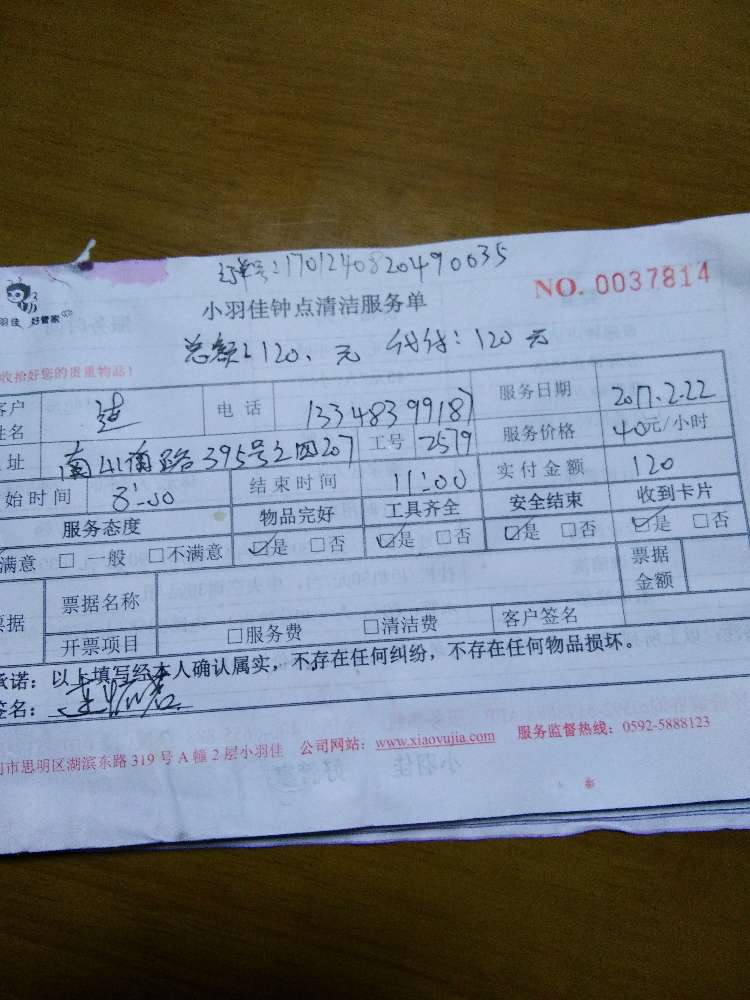 订单号:1701240820490035
NO. 0037814
羽佳 好管家
小羽佳钟点清洁服务单
总额:120.元 代付:120元
收拾好您的贵重物品!
客户姓名 连 电话 13348399187 服务日期 2017.2.22
址 南山南路395号之四207 工号 2579 服务价格 40元/小时
始时间 8:00 结束时间 11:00 实付金额 120
服务态度 物品完好 工具齐全 安全结束 收到卡片
满意 □ 一般 □不满意 ☑是 □否 ☑是 □否 ☑是 □否 ☑是 □否
票据 票据名称 票据金额
开票项目 □服务费 □清洁费 客户签名
承诺:以上填写经本人确认属实,不存在任何纠纷,不存在任何物品损坏。
签名:
门市思明区湖滨东路319号A幢2层小羽佳 公司网站:www.xiaoyujia.com 服务监督热线:0592-5888123